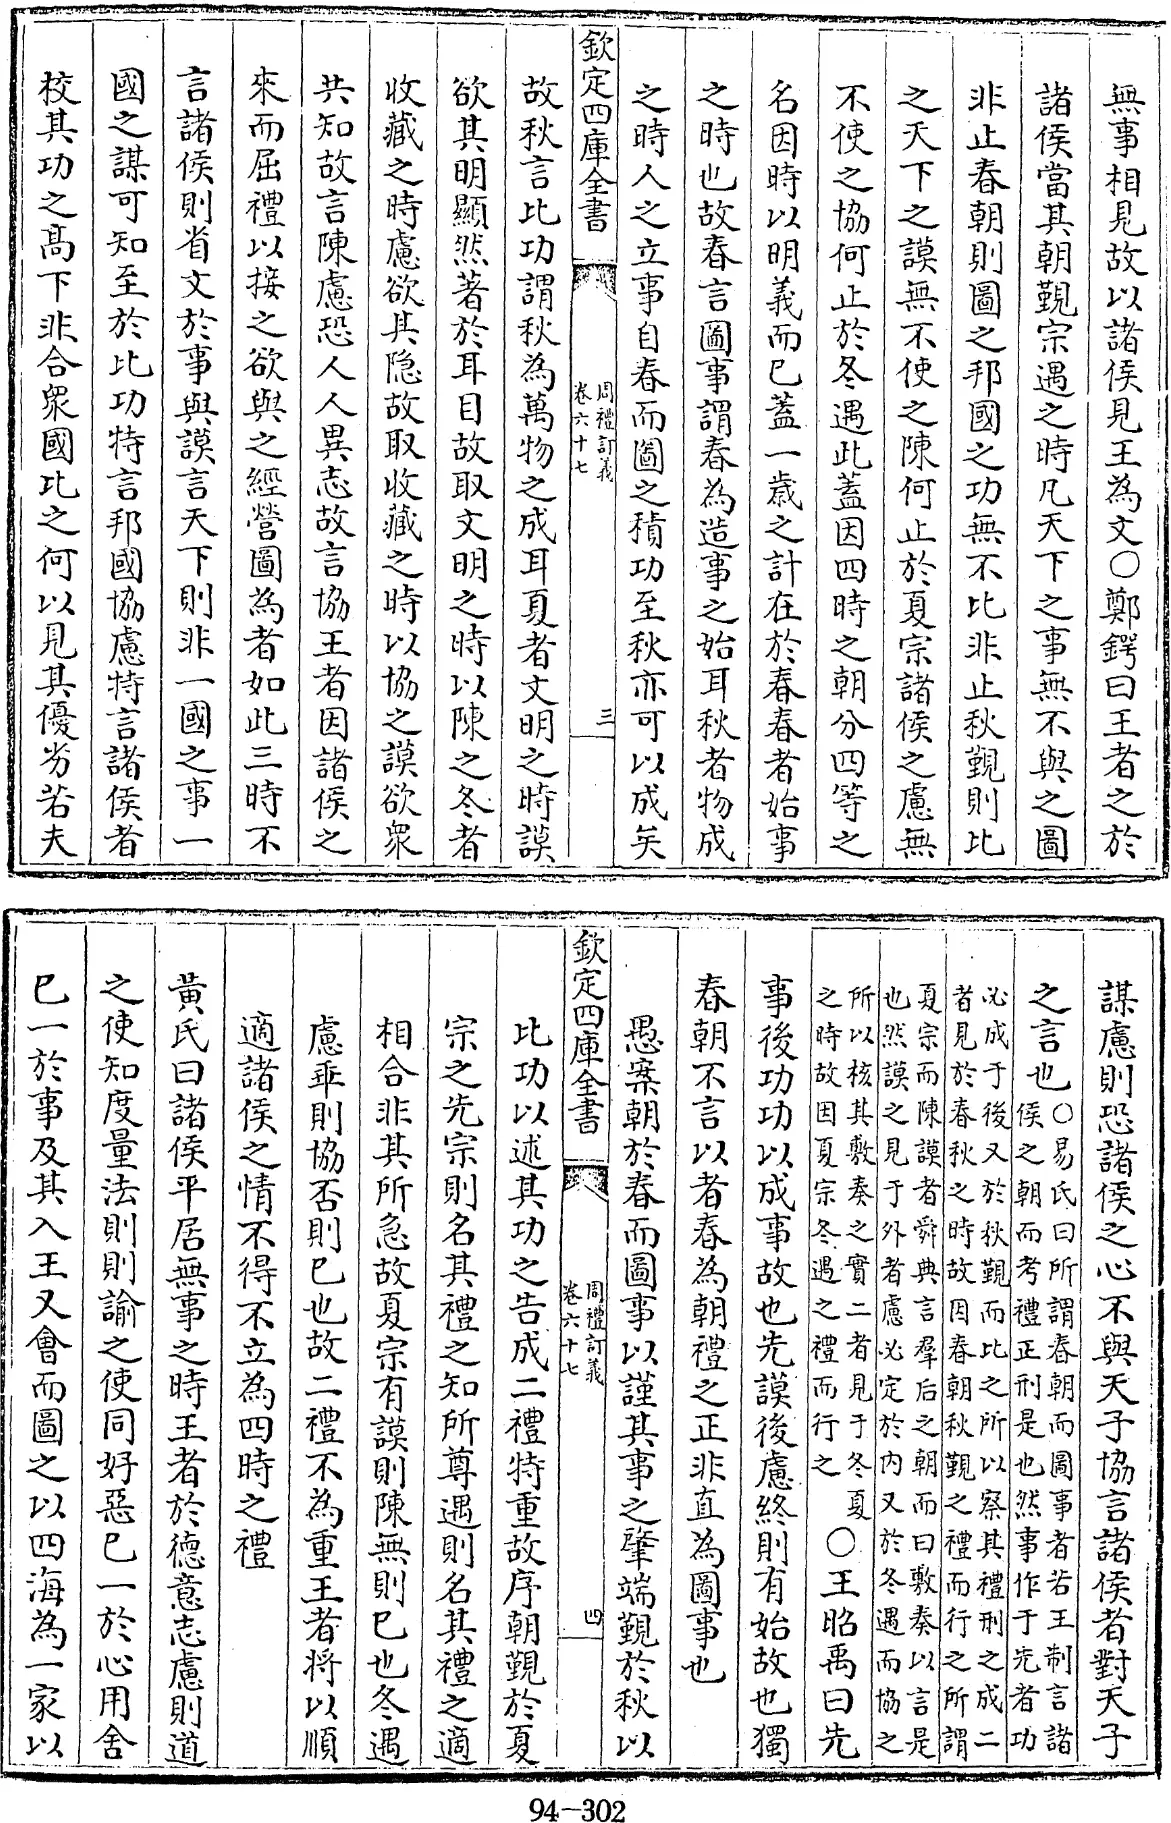 無事相見故以諸侯見王為文○鄭鍔曰王者之於
諸侯當其朝覲宗遇之時凡天下之事無不與之圖
非止春朝則圖之邦國之功無不比非止秋覲則比
之天下之謨無不使之陳何止於夏宗諸侯之慮無
不使之協何止於冬遇此蓋因四時之朝分四等之
名因時以明義而已蓋一歲之計在於春春者始事
之時也故春言圖事謂春為造事之始耳秋者物成
之時人之立事自春而圖之積功至秋亦可以成矣
欽定四庫全書
周禮訂義
卷六十七
三
故秋言比功謂秋為萬物之成耳夏者文明之時謨
欲其明顯然著於耳目故取文明之時以陳之冬者
收藏之時慮欲其隐故取收藏之時以協之謨欲衆
共知故言陳慮恐人人異志故言協王者因諸侯之
來而屈禮以接之欲與之經營圖為者如此三時不
言諸侯則省文於事與謨言天下則非一國之事一
國之謀可知至於比功特言邦國協慮特言諸侯者
校其功之髙下非合衆國比之何以見其優劣若夫
謀慮則恐諸侯之心不與天子協言諸侯者對天子
之言也○易氏曰所謂春朝而圖事者若王制言諸
侯之朝而考禮正刑是也然事作于先者功
必成于後又於秋覲而比之所以察其禮刑之成二
者見於春秋之時故因春朝秋覲之禮而行之所謂
夏宗而陳謨者舜典言羣后之朝而曰敷奏以言是
也然謨之見于外者慮必定於内又於冬遇而協之
所以核其敷奏之實二者見于冬夏
之時故因夏宗冬遇之禮而行之
○王昭禹曰先
事後功功以成事故也先謨後慮終則有始故也獨
春朝不言以者春為朝禮之正非直為圖事也
愚案朝於春而圖事以謹其事之肇端覲於秋以
欽定四庫全書
周禮訂義
卷六十七
四
比功以述其功之告成二禮特重故序朝覲於夏
宗之先宗則名其禮之知所尊遇則名其禮之適
相合非其所急故夏宗有謨則陳無則已也冬遇
慮乖則協否則已也故二禮不為重王者將以順
適諸侯之情不得不立為四時之禮
黃氏曰諸侯平居無事之時王者於徳意志慮則道
之使知度量法則則諭之使同好惡已一於心用舍
已一於事及其入王又會而圖之以四海為一家以
94-302